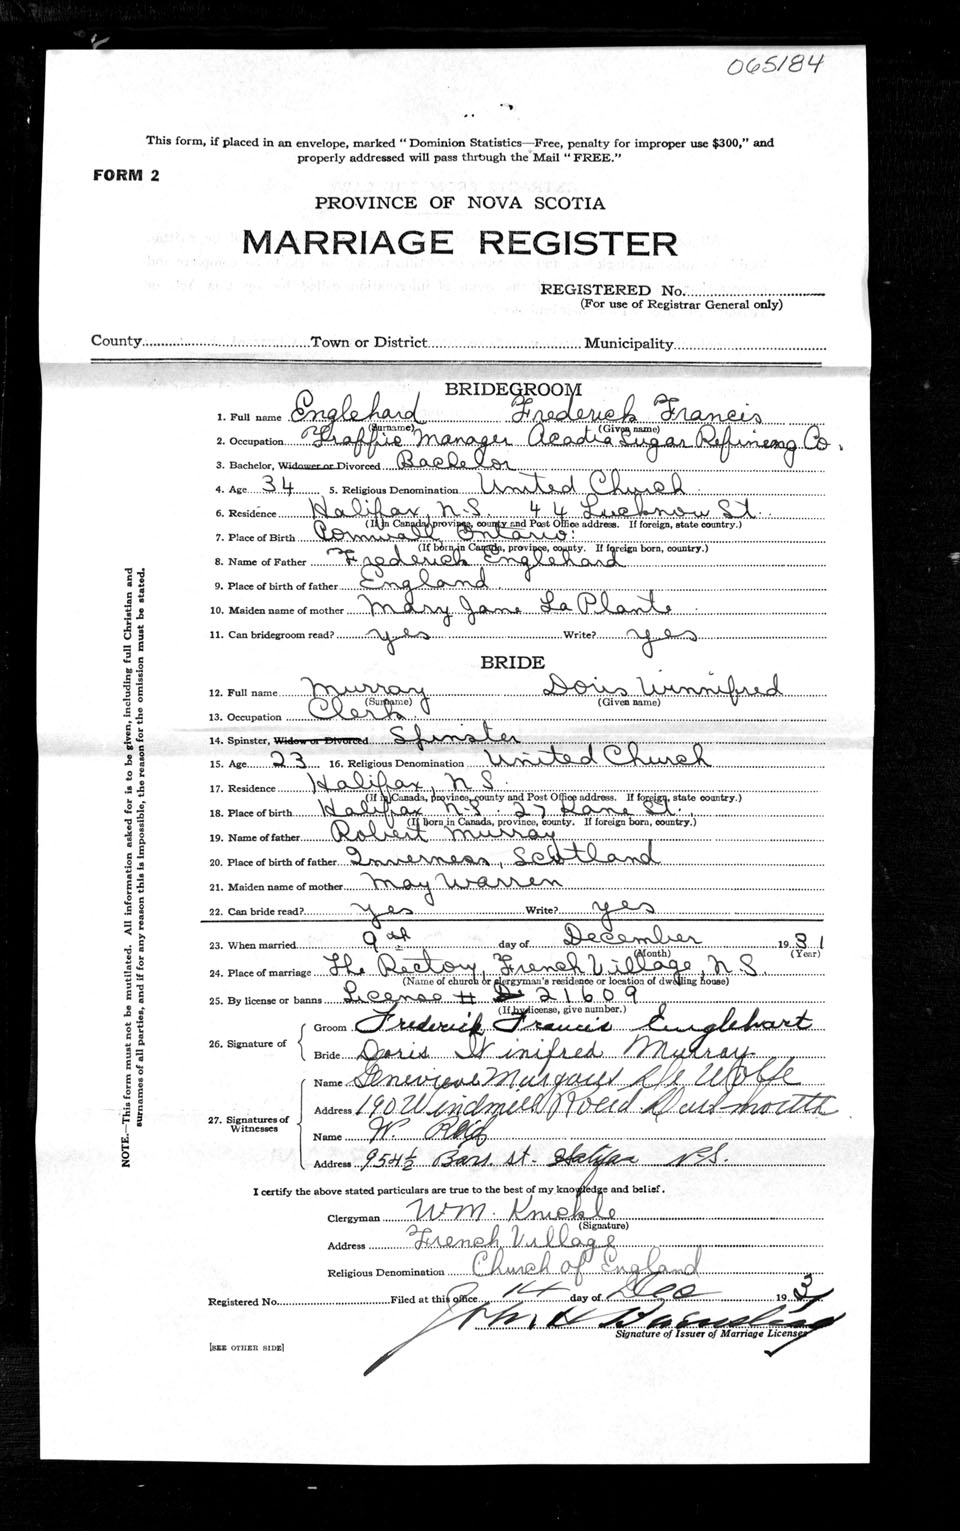 065184
This form, if placed in an envelope, marked "Dominion Statistics—Free, penalty for improper use $300," and
properly addressed will pass through the Mail "FREE."
FORM 2
PROVINCE OF NOVA SCOTIA
MARRIAGE REGISTER
REGISTERED No.
(For use of Registrar General only)
County Town or District Municipality
BRIDEGROOM
1. Full name Englehard Frederick Francis
(Surname) (Given name)
2. Occupation Traffic Manager Acadia Sugar Refineng Co.
3. Bachelor, Widower or Divorced Bachelor
4. Age 34 5. Religious Denomination United Church
6. Residence Halifax, N.S. 44 Lucknow St.
(If in Canada, province, county and Post Office address. If foreign, state country.)
7. Place of Birth Cornwall Ontario.
(If born in Canada, province, county. If foreign born, country.)
8. Name of Father Frederick Englehard
9. Place of birth of father England
10. Maiden name of mother Mary Jane LaPlante
11. Can bridegroom read? yes Write? yes
BRIDE
12. Full name Murray Doris Winnifred
(Surname) (Given name)
13. Occupation Clerk
14. Spinster, Widow or Divorced Spinster
15. Age 23 16. Religious Denomination United Church
17. Residence Halifax, N S.
(If in Canada, province, county and Post Office address. If foreign, state country.)
18. Place of birth Halifax N.S. 27 Kane St.
(If Born in Canada, province, county. If foreign born, country.)
19. Name of father Robert Murray
20. Place of birth of father Inverness, Scotland
21. Maiden name of mother May Warren
22. Can bride read? yes Write? yes
23. When married 9th day of December 1931
(Month) (Year)
24. Place of marriage The Rectory, French Village, N.S.
(Name of church or clergyman's residence or location of dwelling house)
25. By license or banns License # 21609
(If by license, give number.)
26. Signature of
Groom Frederick Francis Englehart
Bride Doris Winifred Murray
27. Signatures of Witnesses
Name Genevieve Margaret De Wolfe
Address 190 Windmill Road Dartmouth
Name W. Reid
Address 954½ Barr. St. Halifax N.S.
I certify the above stated particulars are true to the best of my knowledge and belief.
Clergyman WM. Knickle
(Signature)
Address French Village
Religious Denomination Church of England
Registered No. Filed at this office 14 day of Dec 193
John H
Signature of Issuer of Marriage Licenses
[SEE OTHER SIDE]
NOTE.—This form must not be mutilated. All information asked for is to be given, including full Christian and
surnames of all parties, and if for any reason this is impossible, the reason for the omission must be stated.